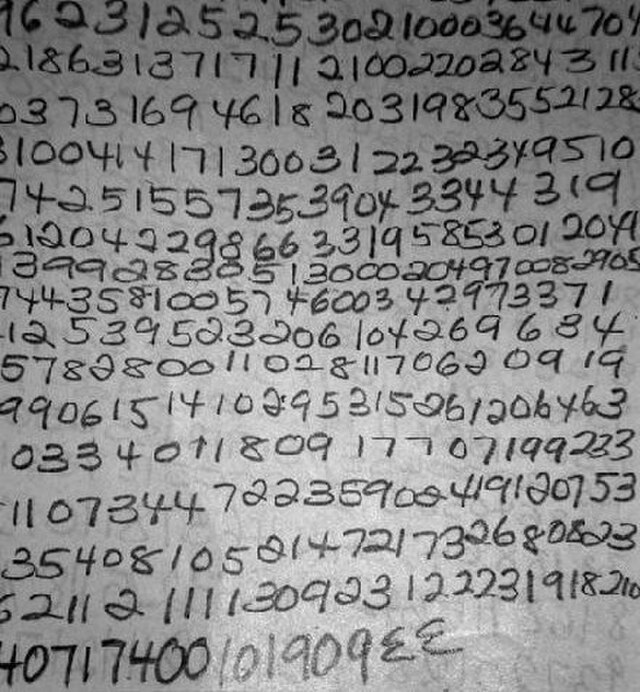 9623125253021000364470
21863137171121002202843 11
0373169461820319835521 28
31004141713003122323495 10
742.515573539043344319
61204229866331958530120 4
13992830513000204970082905
744358100574600342973371
12539523206104269634
578280011028117062 0919
9906151410295315261206463
03340711809177707199233
1107344722359024191 20753
35408105214721732680823
62112111130923122231918210
40717400101909